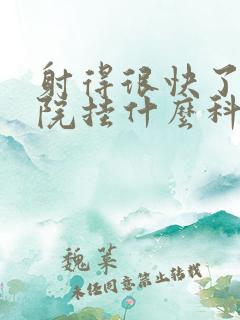 射得很快了
院挂什麽科
魏某
未经同意禁止转载